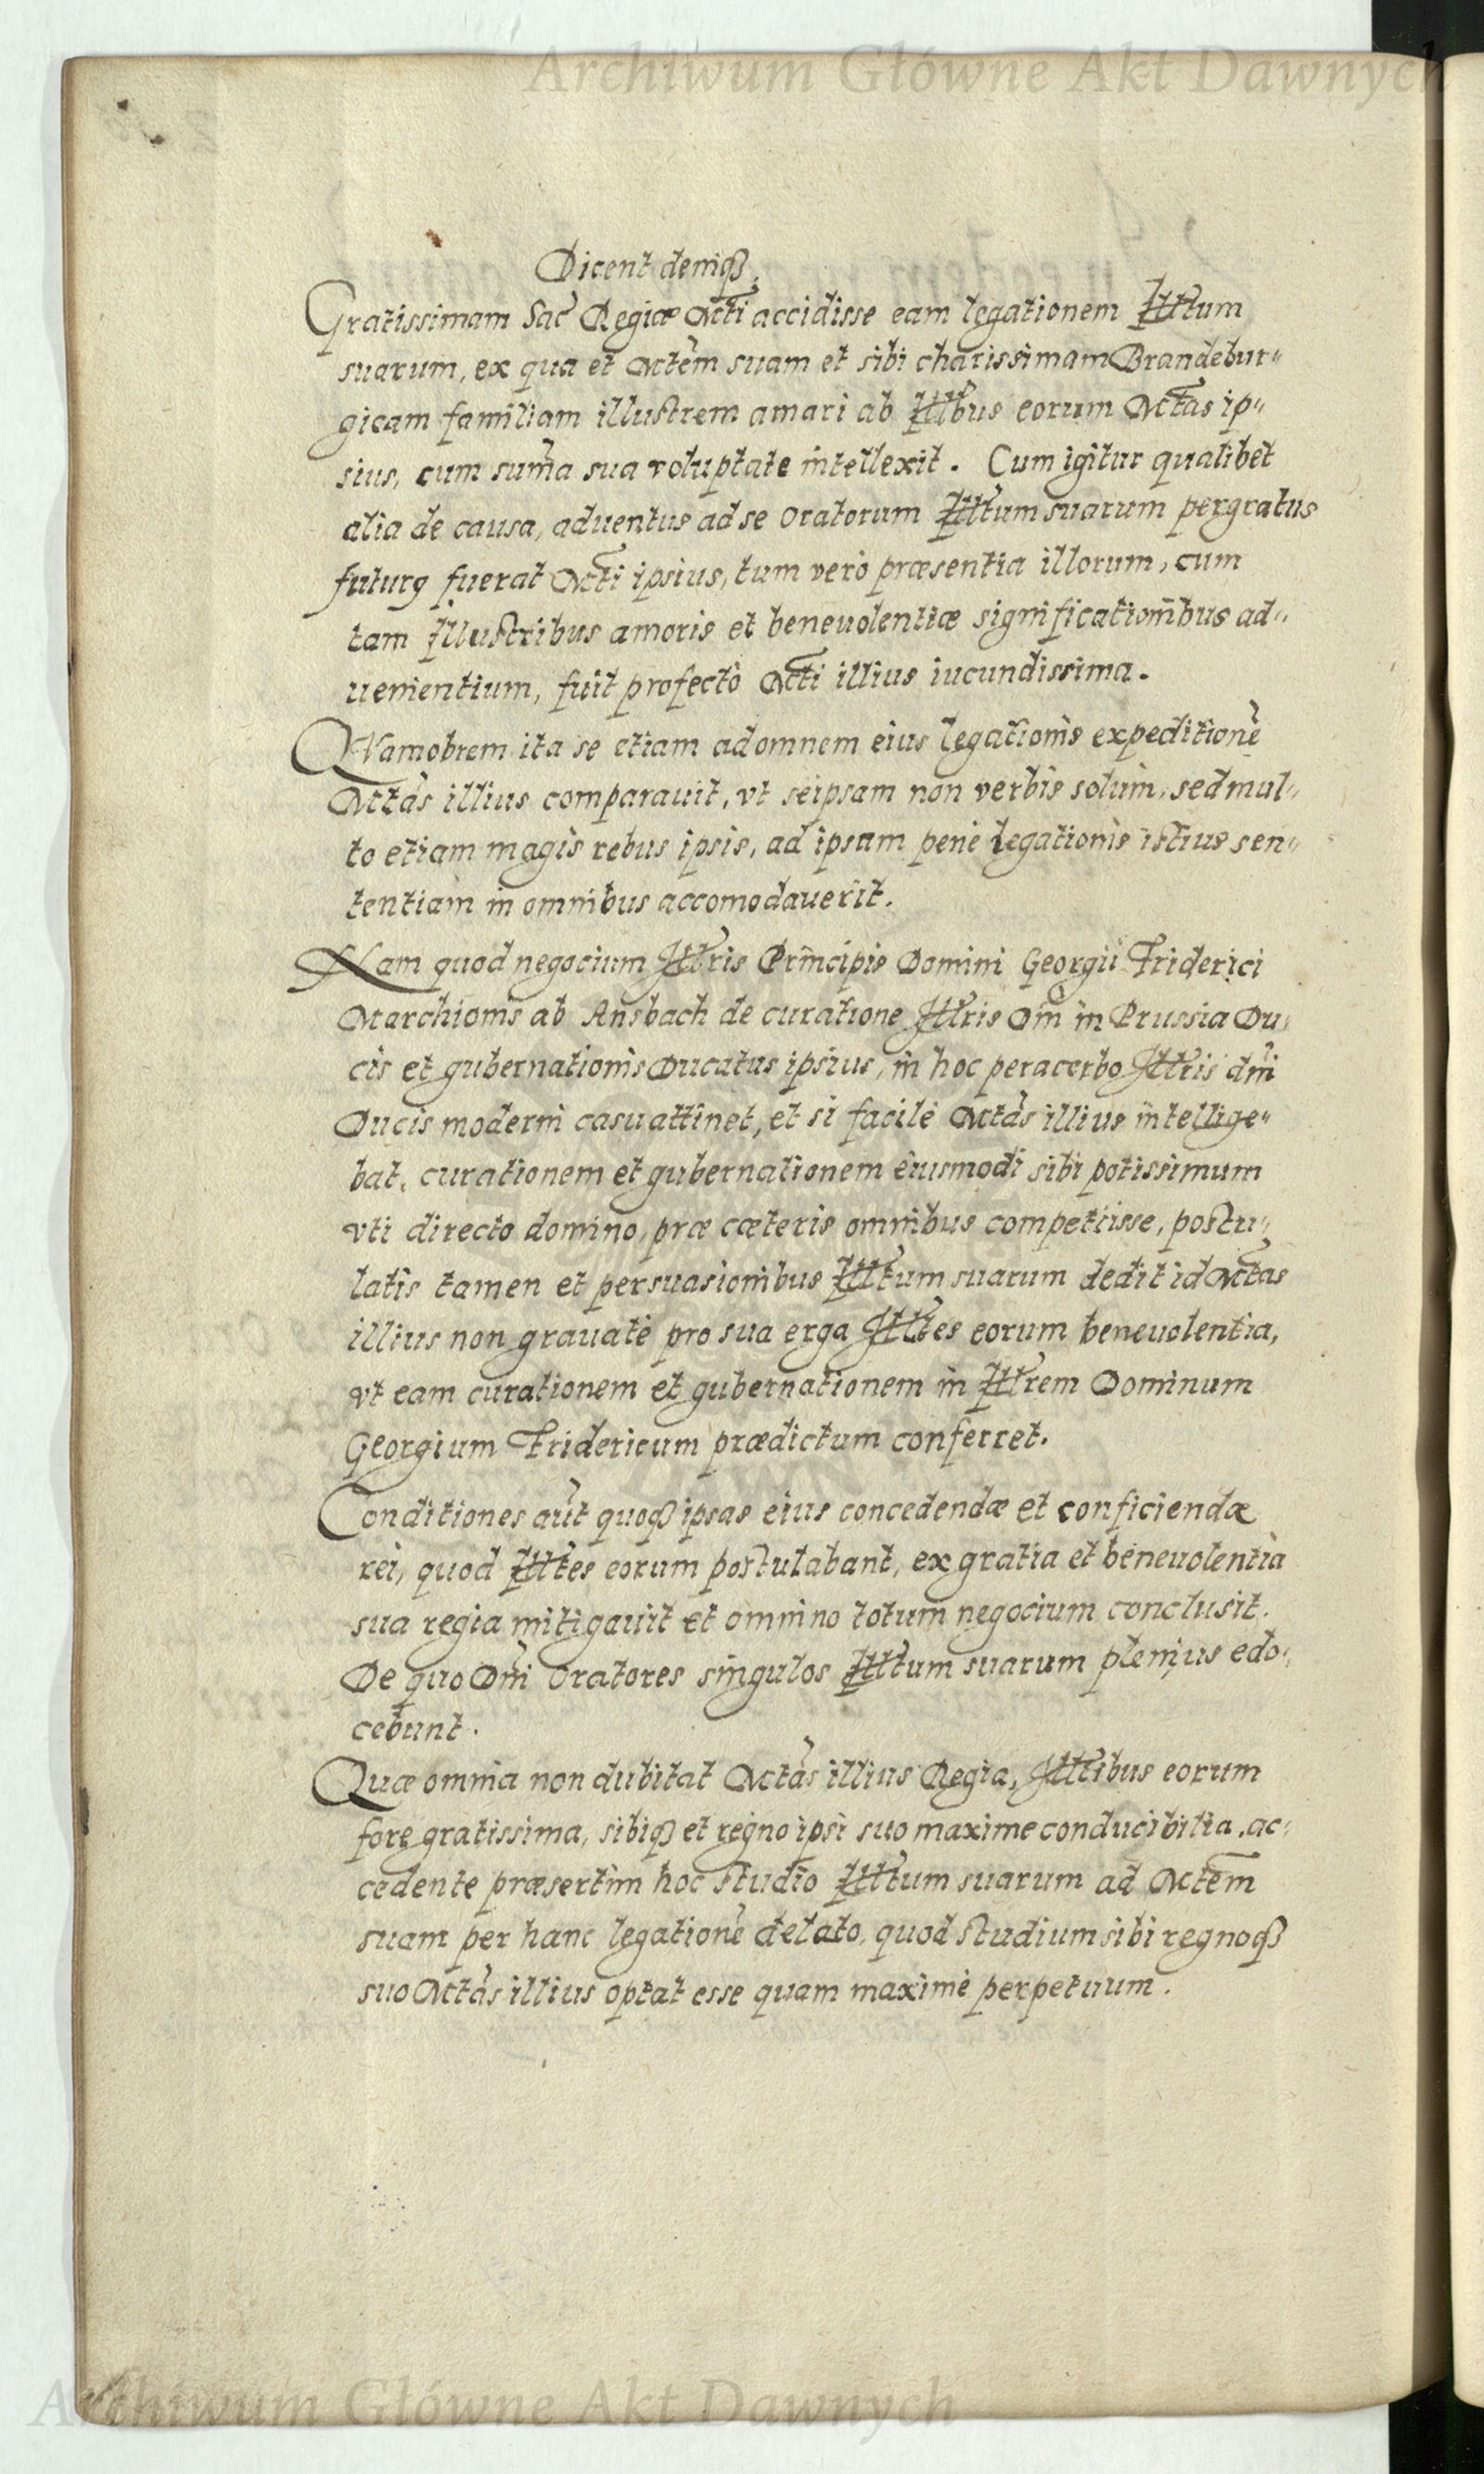 Archiwum Główne Akt Dawnych
Dicent deniqȝ.
Gratissimam Sac̃ Regiæ Mti accidisse eam legationem Illtum
suarum, ex qua et Mtem suam et sibi charissimam Brandebur„
gicam familiam illustrem amari ab Illbus eorum Mtas ip„
sius, cum sum̃a sua voluptate intellexit. Cum igitur qualibet
alia de causa, aduentus ad se Oratorum Illtum suarum pergratus
futurꝯ fuerat Mti ipsius, tum verò præsentia illorum, cum
tam Illustribus amoris et beneuolentiæ significationibus ad„
uenientium, fuit profectò Mti illius iucundissima.
QVamobrem ita se etiam ad omnem eius legationis expeditionẽ
Mtas illius comparauit, vt seipsam non verbis solùm, sed mul„
to etiam magis rebus ipsis, ad ipsam penè legationis istius sen„
tentiam in omnibus accomodauerit.
Nam quod negocium Illtris Principis Domini Georgii Friderici
Marchionis ab Ansbach de curatione Illtris Dm̃ in Prussia Du„
cis et gubernationis Ducatus ipsius, in hoc peracerbo Illtris dm̃i
Ducis moderni casu attinet, et si facilè Mtas illius intellige„
bat, curationem et gubernationem eiusmodi sibi potissimum
vti directo domino, præ cæteris omnibus competiisse, postu„
latis tamen et persuasionibus Illtum suarum dedit id Mtas
illius non grauatè pro sua erga Illtes eorum beneuolentia,
vt eam curationem et gubernationem in Illtrem Dominum
Georgium Fridericum prædictum conferret.
Conditiones aũt quoqȝ ipsas eius concedendæ et conficiendæ
rei, quod Illtes eorum postulabant, ex gratia et beneuolentia
sua regia mitigauit et omnino totum negocium conclusit.
De quo Dni Oratores singulos Illtum suarum plenius edo„
cebunt.
Quæ omnia non dubitat Mtas illius Regia, Illtribus eorum
fore gratissima, sibiqȝ et regno ipsi suo maxime conducibilia, ac„
cedente præsertim hoc studio Illtum suarum ad Mtem
suam per hanc legationẽ delato, quod studium sibi regnoqȝ
suo Mtas illius optat esse quam maximè perpetuum.
Archiwum Główne Akt Dawnych